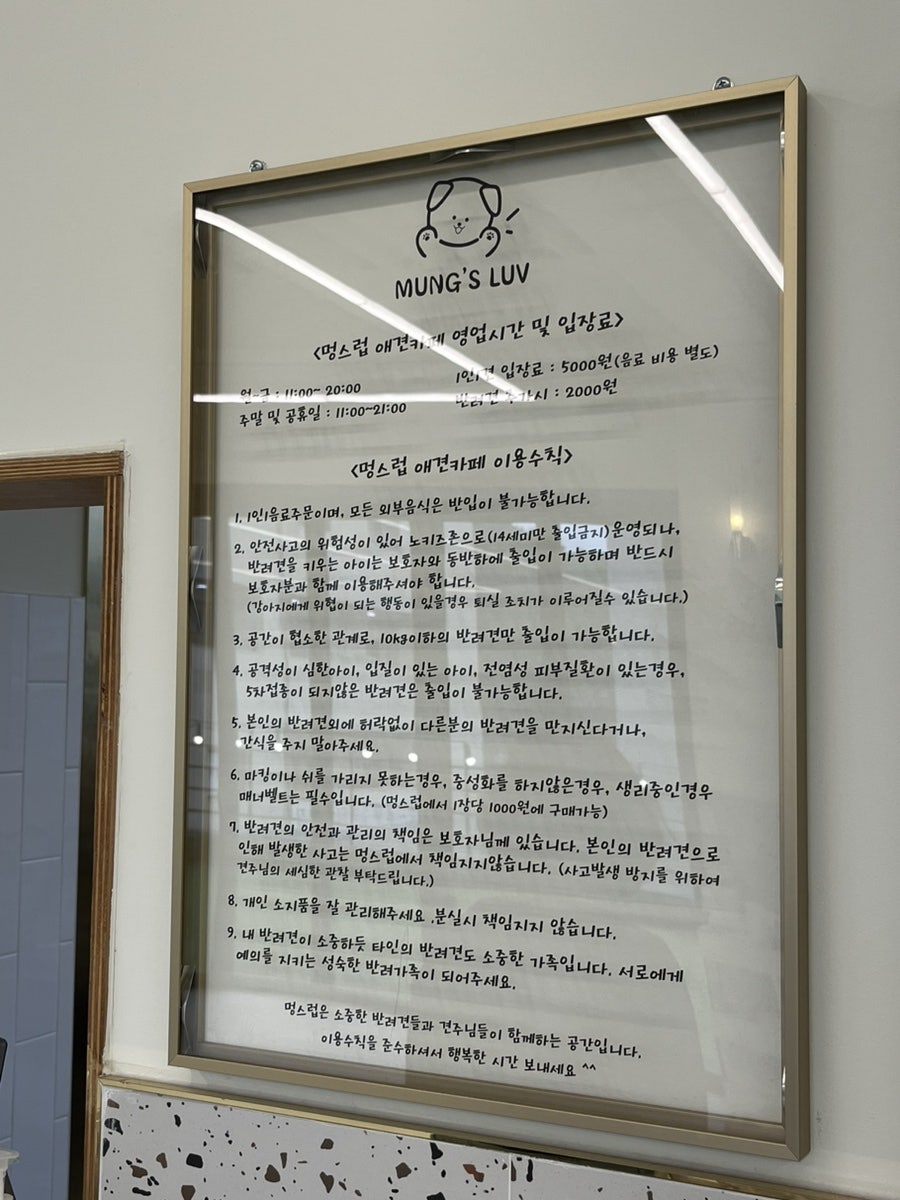 MUNG'S LUV
<멍스럽 애견카페 영업시간 및 입장료>
월~금 : 11:00~ 20:00
주말 및 공휴일 : 11:00~21:00
1인1견 입장료 : 5000원(음료 비용 별도)
반려견 추가시 : 2000원
<멍스럽 애견카페 이용수칙>
1. 1인1음료주문이며, 모든 외부음식은 반입이 불가능합니다.
2. 안전사고의 위험성이 있어 노키즈존으로(14세미만 출입금지)운영되나,
반려견을 키우는 아이는 보호자와 동반하에 출입이 가능하며 반드시
보호자분과 함께 이용해주셔야 합니다.
(강아지에게 위협이 되는 행동이 있을경우 퇴실 조치가 이루어질수 있습니다.)
3. 공간이 협소한 관계로, 10kg이하의 반려견만 출입이 가능합니다.
4. 공격성이 심한아이, 입질이 있는 아이, 전염성 피부질환이 있는경우,
5차접종이 되지않은 반려견은 출입이 불가능합니다.
5. 본인의 반려견외에 허락없이 다른분의 반려견을 만지신다거나,
간식을 주지 말아주세요.
6. 마킹이나 쉬를 가리지 못하는경우, 중성화를 하지않은경우, 생리중인경우
매너벨트는 필수입니다. (멍스럽에서 1장당 1000원에 구매가능)
7. 반려견의 안전과 관리의 책임은 보호자님께 있습니다. 본인의 반려견으로
인해 발생한 사고는 멍스럽에서 책임지지않습니다. (사고발생 방지를 위하여
견주님의 세심한 관찰 부탁드립니다.)
8. 개인 소지품을 잘 관리해주세요 .분실시 책임지지 않습니다.
9. 내 반려견이 소중하듯 타인의 반려견도 소중한 가족입니다. 서로에게
예의를 지키는 성숙한 반려가족이 되어주세요.
멍스럽은 소중한 반려견들과 견주님들이 함께하는 공간입니다.
이용수칙을 준수하셔서 행복한 시간 보내세요 ^^